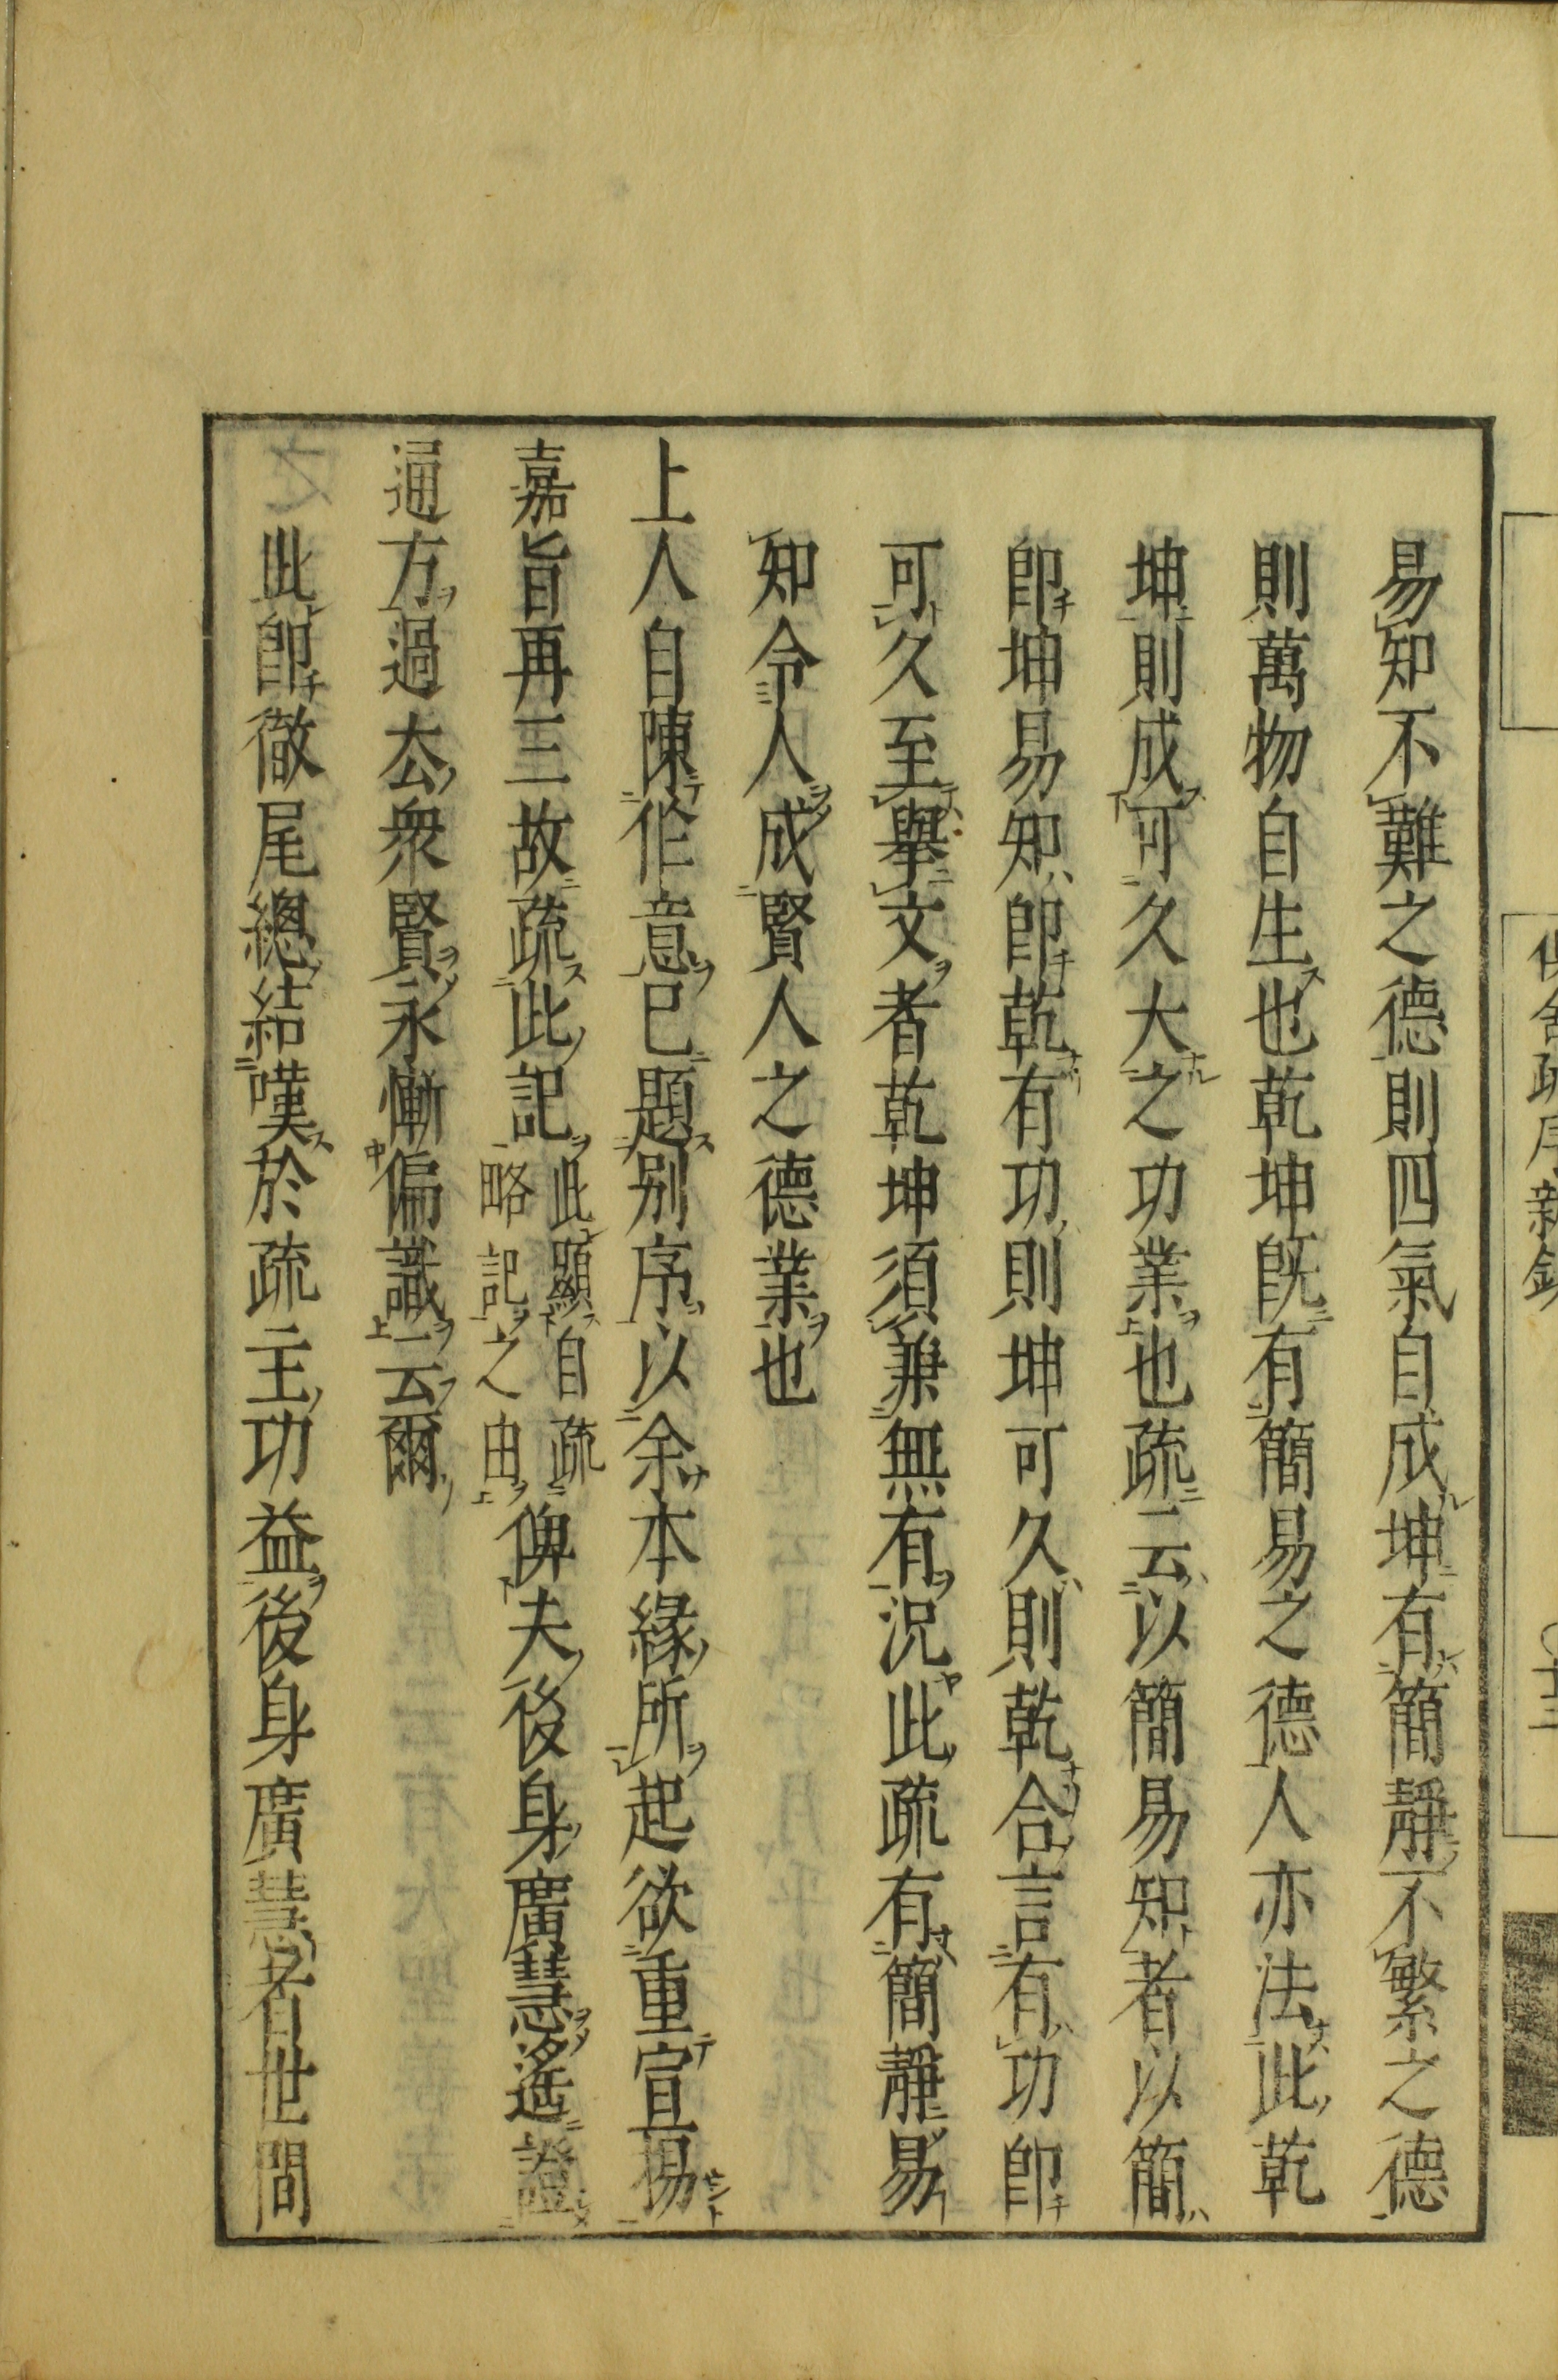 易知不難之德則四氣自成坤有簡靜不繁之德
則萬物自生也乾坤既有簡易之德人亦法此乾
坤則成可久大之功業也疏云以簡易知者以簡
即坤易知即乾有功則坤可久則乾合言有功即
可久至舉文者乾坤須兼無有況此疏有簡靜易
知令人成賢人之德業也
上人自陳作意已題別序以余本緣所起欲重宣揚
嘉旨再三故疏此記此顯自疏略記之由俾夫後身廣慧遙證
通方過去衆賢永慚偏識云爾
此即徹尾總結嘆於疏主功益後身廣慧者世間